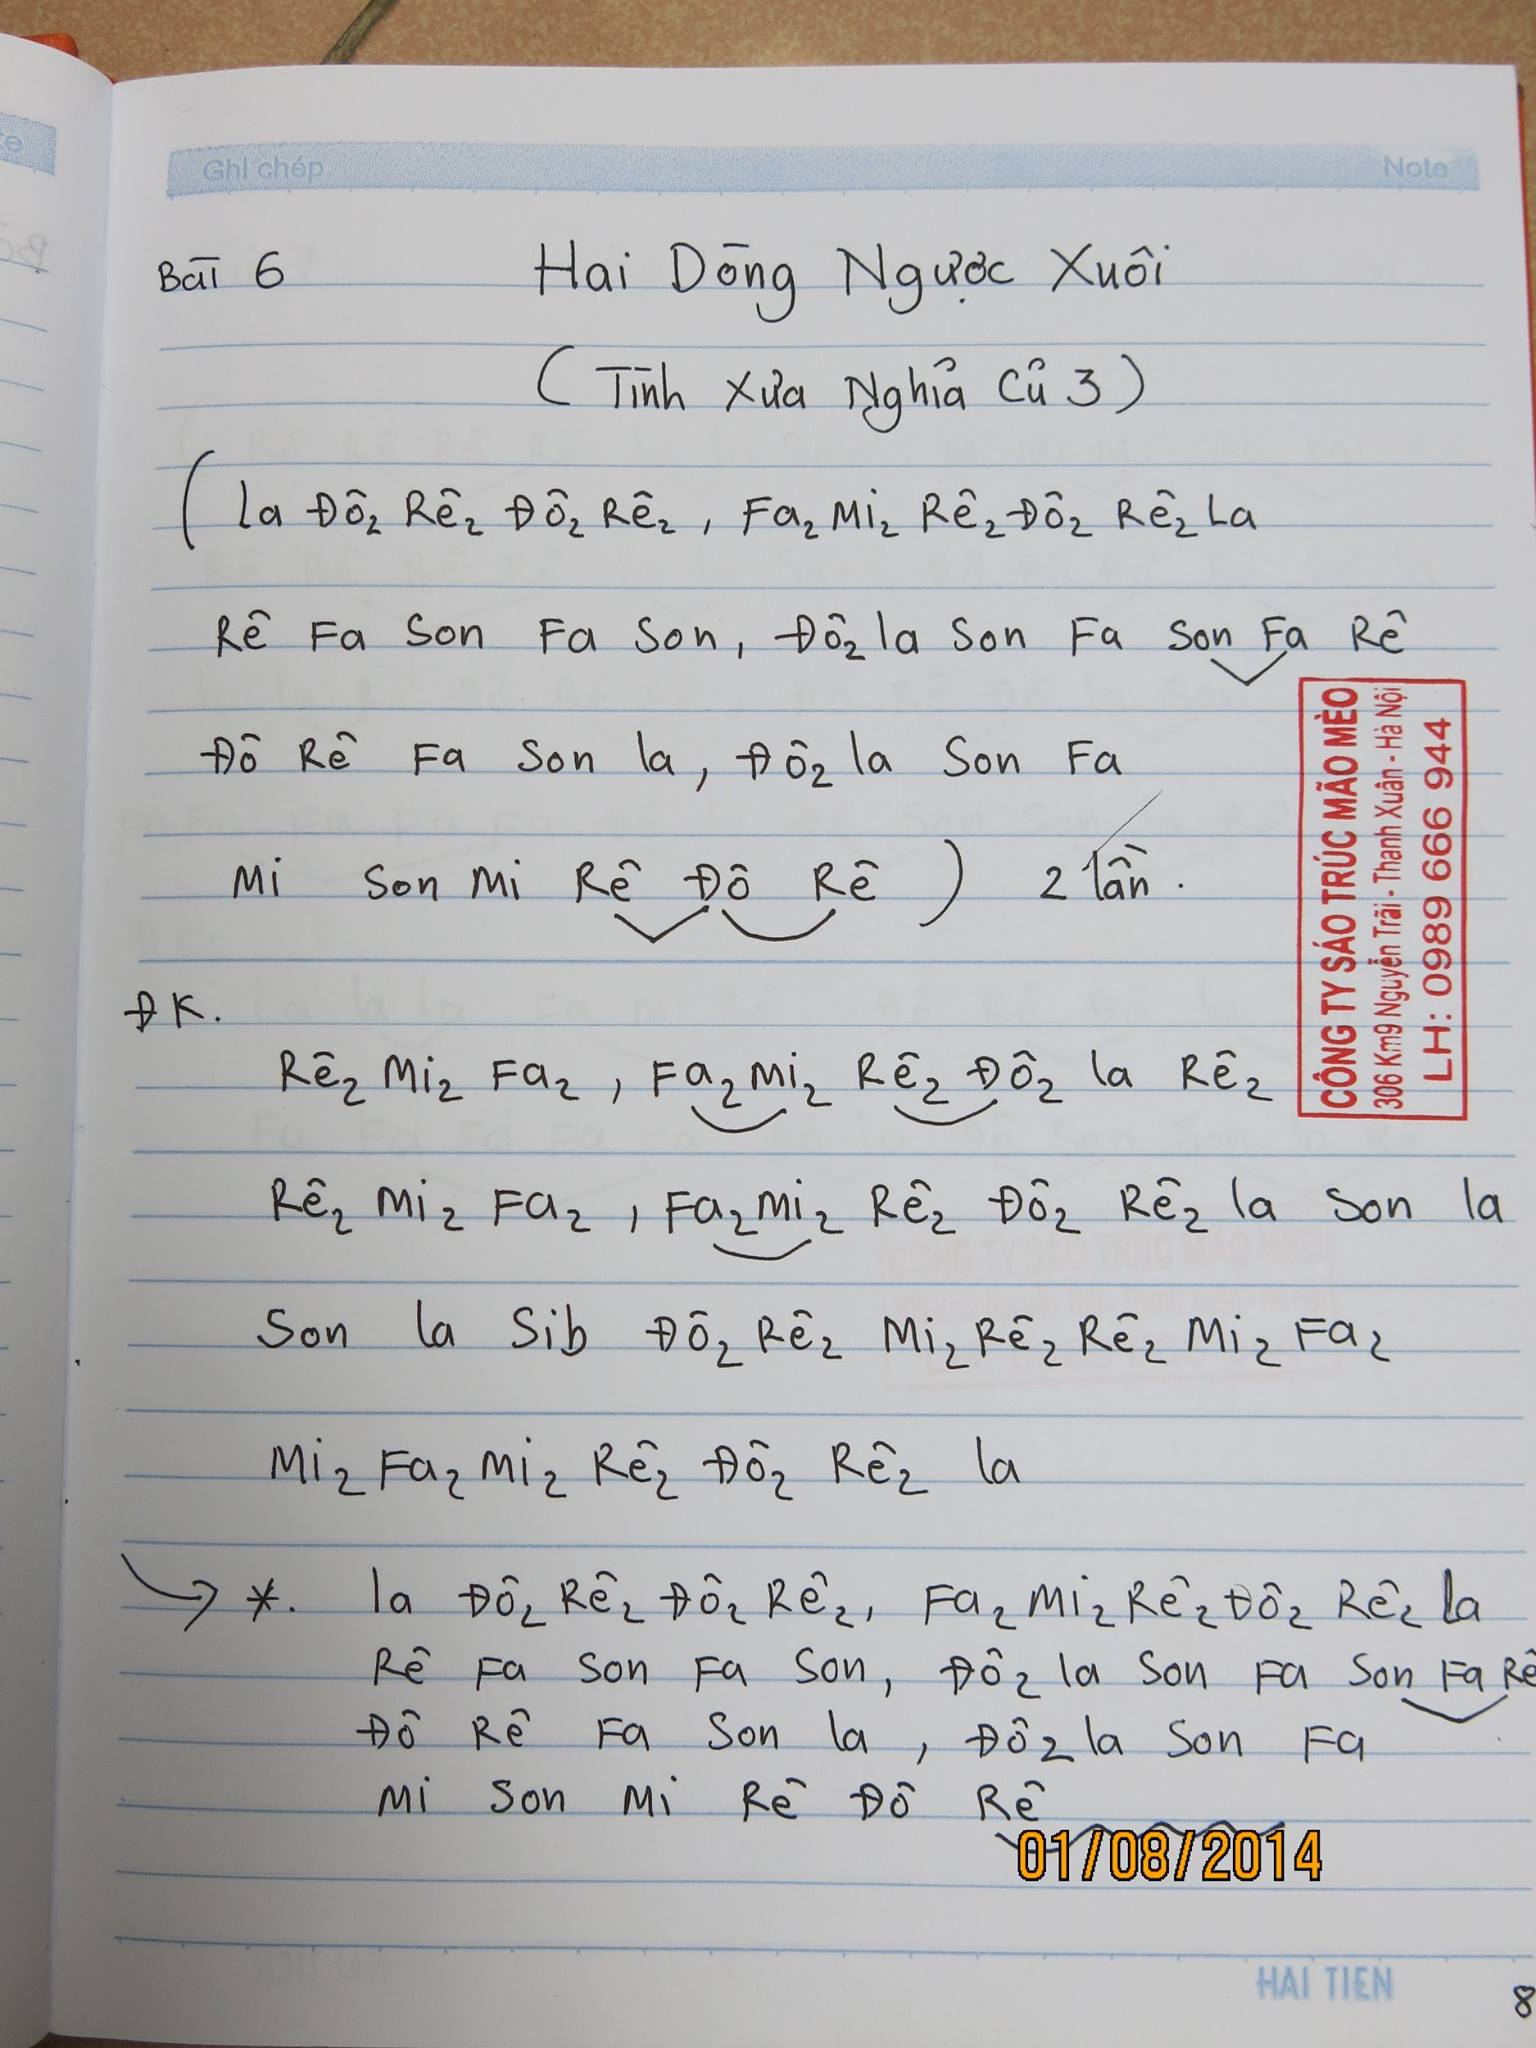 Ghi chép Note
Bài 6 Hai Dòng Ngược Xuôi
( Tình Xưa Nghĩa Cũ 3 )
( la Đô₂ Rê₂ Đô₂ Rê₂ , Fa₂ Mi₂ Rê₂ Đô₂ Rê₂ La
Rê Fa Son Fa Son, Đô₂ la Son Fa Son Fa Rê
Đô Rê Fa Son la, Đô₂ la Son Fa
Mi Son Mi Rê Đô Rê ) 2 lần.
ĐK.
Rê₂ Mi₂ Fa₂ , Fa₂ Mi₂ Rê₂ Đô₂ la Rê₂
Rê₂ Mi₂ Fa₂ , Fa₂ Mi₂ Rê₂ Đô₂ Rê₂ la Son la
Son la Sib Đô₂ Rê₂ Mi₂ Rê₂ Rê₂ Mi₂ Fa₂
Mi₂ Fa₂ Mi₂ Rê₂ Đô₂ Rê₂ la
→ *. la Đô₂ Rê₂ Đô₂ Rê₂, Fa₂ Mi₂ Rê₂ Đô₂ Rê₂ la
Rê Fa Son Fa Son, Đô₂ la Son Fa Son Fa Rê
Đô Rê Fa Son la , Đô₂ la Son Fa
Mi Son Mi Rê Đô Rê
CÔNG TY SÁO TRÚC MÃO MÈO
306 Km9 Nguyễn Trãi - Thanh Xuân - Hà Nội
LH: 0989 666 944
01/08/2014
HAI TIEN
8